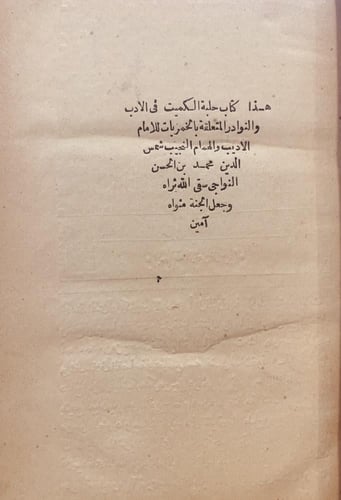 هـذا كتاب حلبة الكميت فى الادب
والنوادر المتعلقة بالخمريات للامام
الاديب والهمام النجيب شمس
الدين محمد بن الحسن
النواجى سقى الله ثراه
وجعل الجنة مثواه
آمين